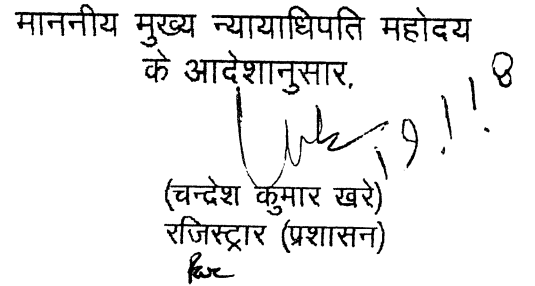 माननीय मुख्य न्यायाधिपति महोदय
के आदेशानुसार,
(चन्देश कुमार खरे)
रजिस्ट्रार (प्रशासन)